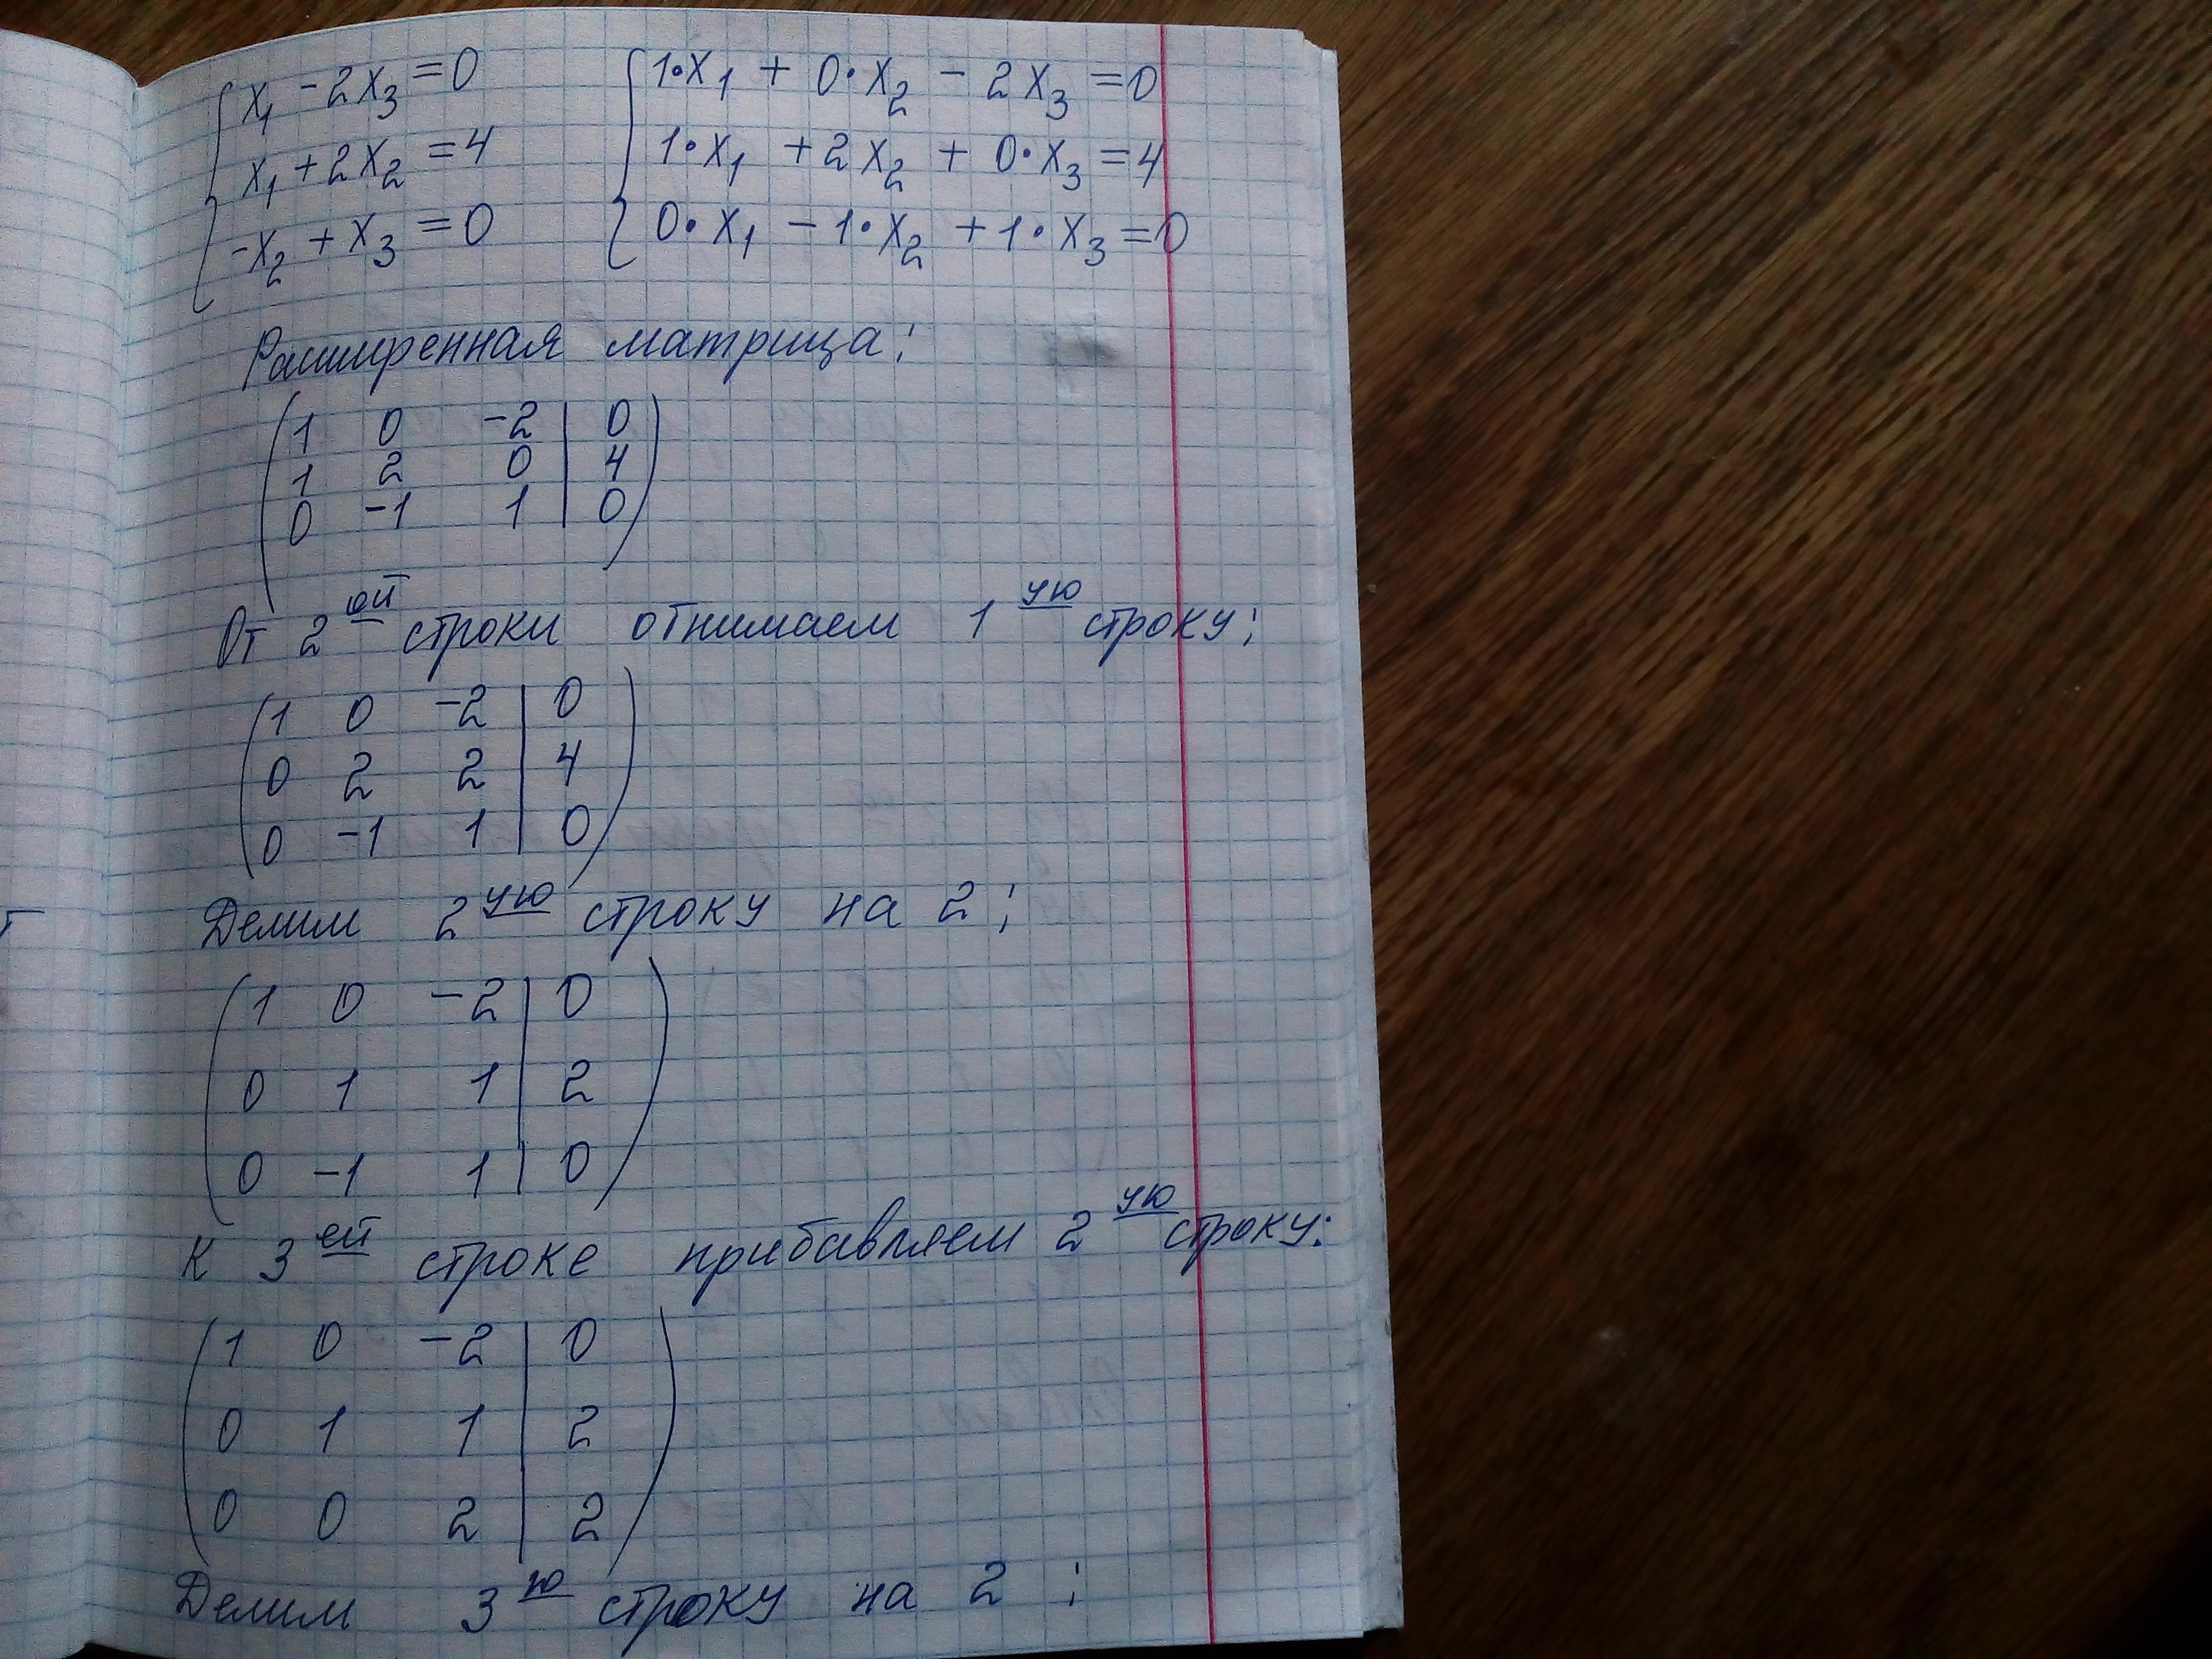 x₁ - 2x₃ = 0    1·x₁ + 0·x₂ - 2x₃ = 0
x₁ + 2x₂ = 4    1·x₁ + 2x₂ + 0·x₃ = 4
-x₂ + x₃ = 0    0·x₁ - 1·x₂ + 1·x₃ = 0
Расширенная матрица:
1 0 -2 | 0
1 2 0 | 4
0 -1 1 | 0
От 2ой строки отнимаем 1ую строку:
1 0 -2 | 0
0 2 2 | 4
0 -1 1 | 0
Делим 2ую строку на 2:
1 0 -2 | 0
0 1 1 | 2
0 -1 1 | 0
К 3ей строке прибавляем 2ую строку:
1 0 -2 | 0
0 1 1 | 2
0 0 2 | 2
Делим 3ю строку на 2: